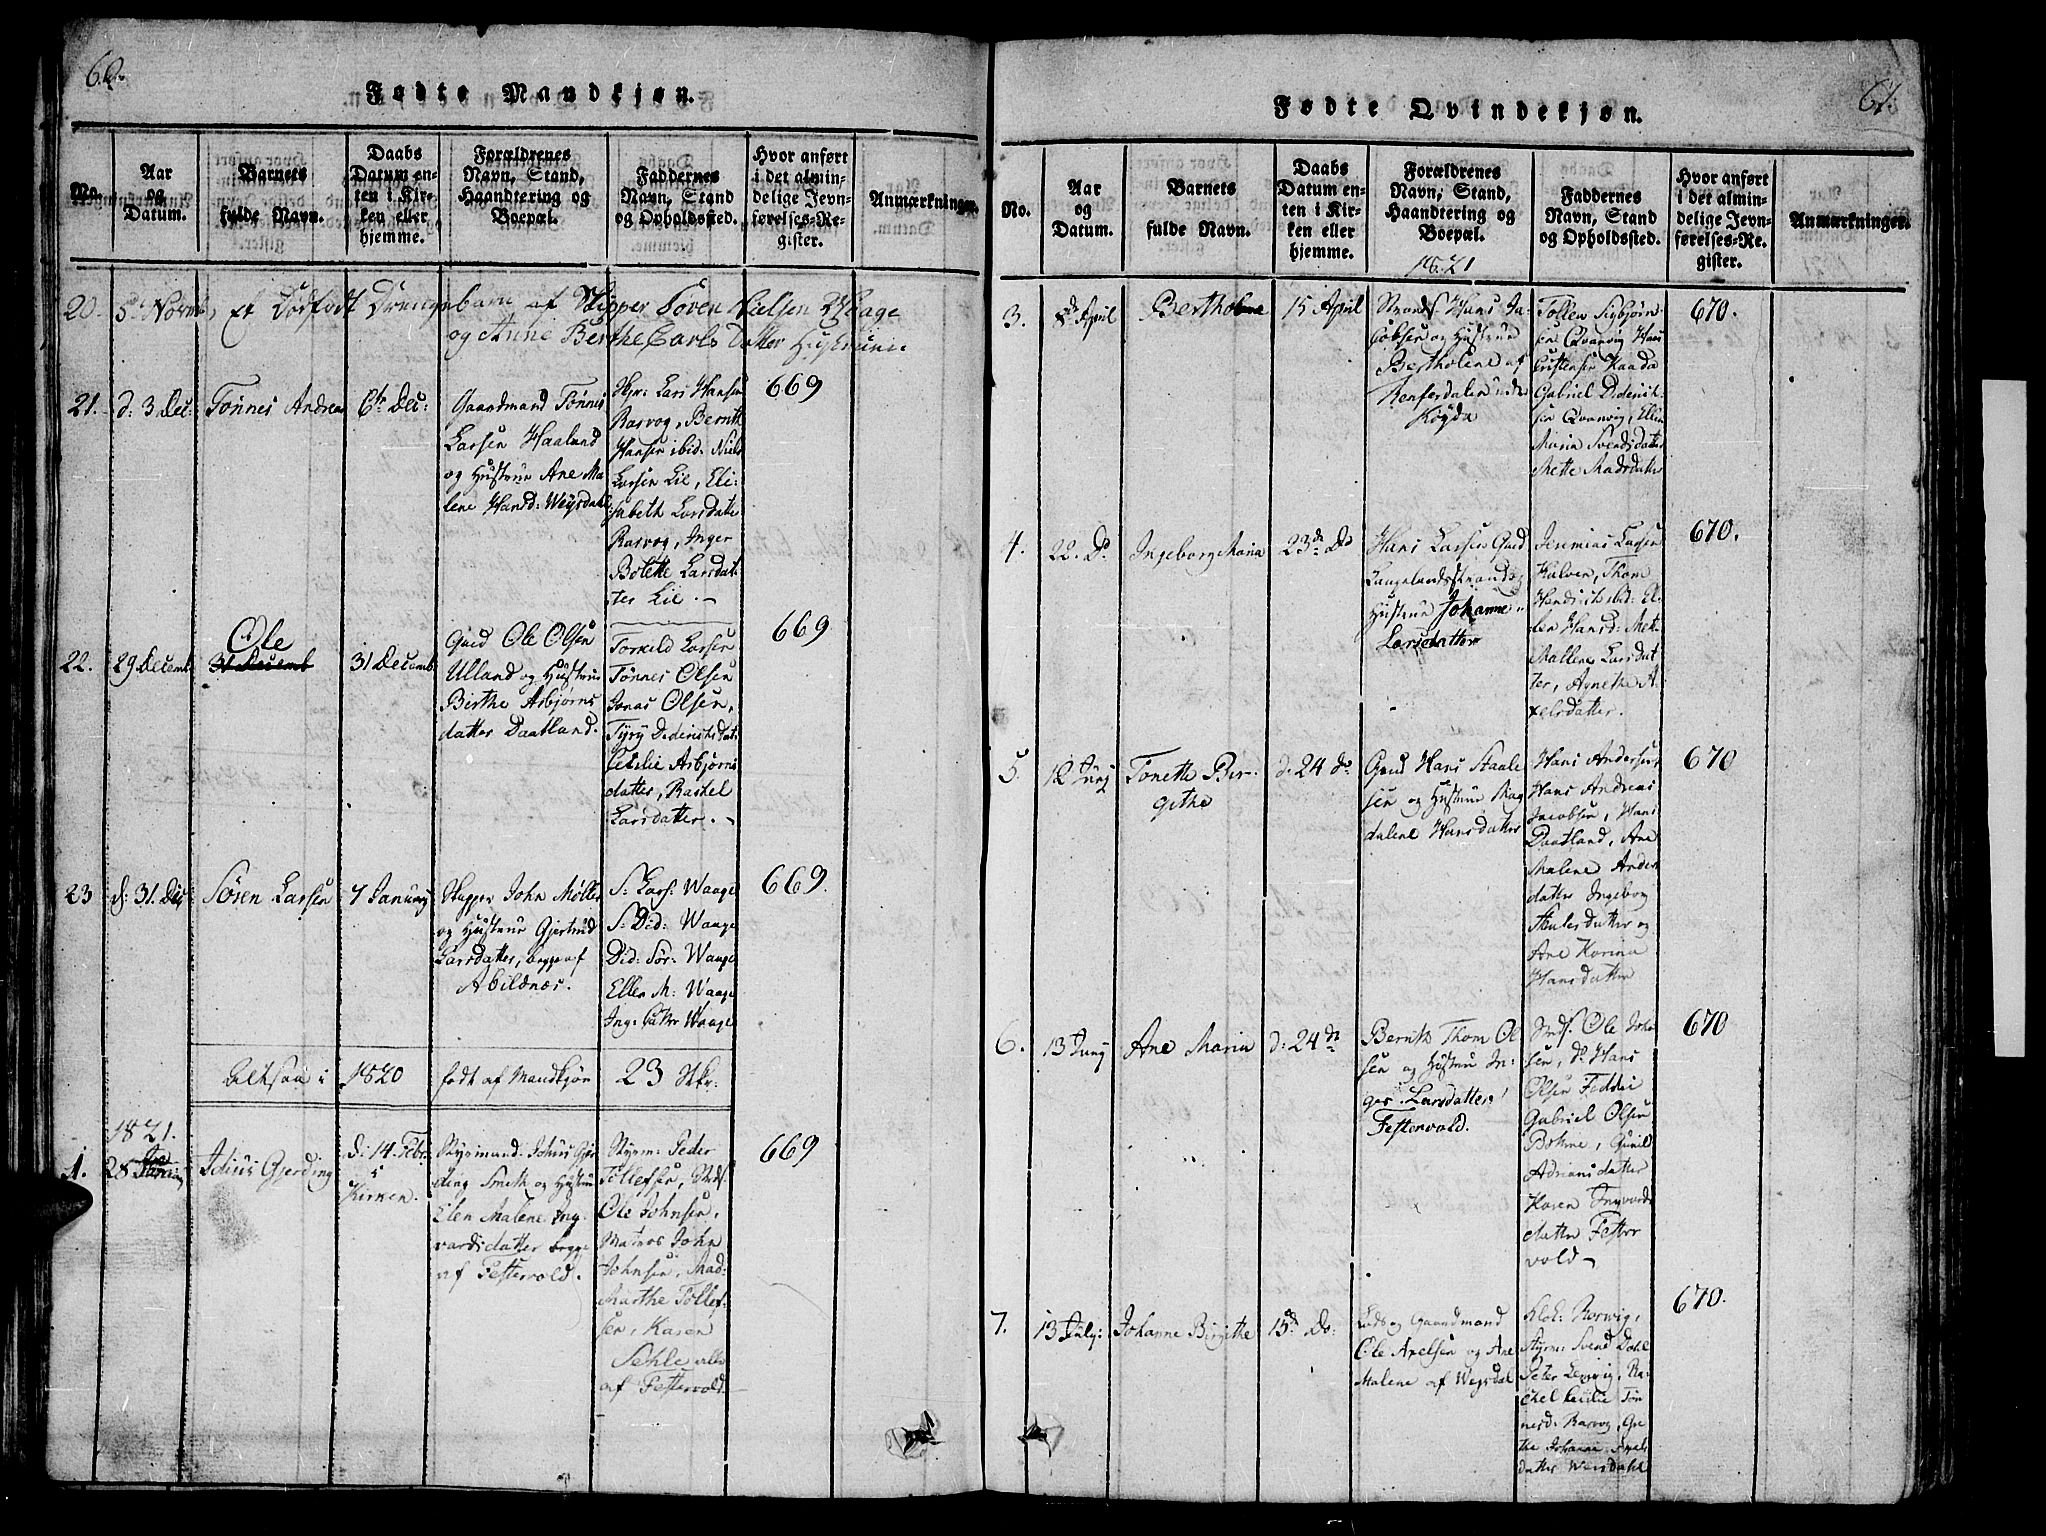 60.
Fødte Mandkjøn.
No.
Aar
og
Datum.
Barnets
fulde Navn.
Daabs
Datum en-
ten i Kir-
ken eller
hjemme.
Forældrenes
Navn, Stand,
Haandtering og
Boepæl.
Faddernes
Navn, Stand
og Opholdssted.
Hvor anført
i det almin-
delige Jevn-
førelses-Re-
gister.
Anmærkninger.
20. 5te Novmb, et Dødfødt Drengebarn af Skipper Soren Nielsen Waage
og Anne Berthe Carls Datter Hustrue
21. d: 3 Dec:
Tønnes Andreas
6te Dec:
Gaardmand Tønnes
Larsen Haaland
og Hustrue Ane Ma
lene Hansd: Weysdahl
Skpr: Lars Hansen
Rasvog, Bernth
Hansen ibid: Niels
Larsen Lie, Eli-
sabeth Larsdatr
Rasvog, Inger
Bolette Larsdat-
ter Lie.
669
22. 29 Decemb
Ole
31 Decemb
31 Decemb
Qmd Ole Olsen
Ulland og Hustrue
Birthe Asbjørns
datter Daatland.
Torkild Larsen
Tønnes Olsen
Jonas Olsen,
Tyry Didriksdat:
Cecilie Asbjørns
datter, Rachel
Larsdatter.
669
23 d: 31. Dec
Søren Larsen
7 January
Skipper John Møller
og Hustrue Gjertrud
Larsdatter, begge af
Abildnæs.
S: Lars: Waage
S: Did: Waage
Did: Sør: Waage
Ellen M: Waage
Ing: Cathr Waage
669
Altsaa i 1820 født af Mandkjøn 23 Stkr:
1821.
1. 28 Jan
Julius Gjerding
d: 14. Febr.
i
Kirken.
Styrmand Johns Gjer
ding Smith og Hustrue
Elen Malene Ing-
vardsdatter begge
af Festervold.
Styrm: Peder
Tollefsen, Strds.
Ole Johnsen,
Matros John
Johnsen, Mad:
Marthe Tollef-
sen, Karen
Sehle alle
af Festervold
669
61.
Fødte Qvindekjøn.
No.
Aar
og
Datum.
Barnets
fulde Navn.
Daabs
Datum en-
ten i Kir-
ken eller
hjemme.
Forældrenes
Navn, Stand,
Haandtering og
Boepæl.
1821
Faddernes
Navn, Stand
og Opholdssted.
Hvor anført
i det almin-
delige Jevn-
førelses-Re.
gister.
Anmærkninger.
3. 8de April
Bertholene
15 April
Strands. Hans Ja-
cobsen og Hustrue
Bertholene af
Renfersdalen under
Køyda
Tollew Sigbjørn
sen Qvanvig Hans
Cristensen Kaada
Gabriel Didrik
sen Qvanvig, Ellen
Maria Svendsdatter
Mette Madsdatter
670.
4. 22. Do
Ingeborg Maria
23de Do
Hans Larsen Qmd
Langelandsstrand og
Hustrue Johanne
Larsdatter
Jeremias Larsen
Halven, Thom
Hendrichs ibid: El-
len Hansd: Met-
Mallene Larsdat
ter, Agnethe A-
xelsdatter.
670.
5. 12 Juny
Tonette Bir-
githe
d: 24 do
Qmd Hans Staale
sen og Hustrue Mag
dalene Hansdatter
Hans Andersen
Hans Andreas
Jacobsen, Hans
Daatland, Ane
Malene Anders
datter Ingeborg
Skulesdatter og
Ane Karina
Hansdatter
670
6. 13 Juny
Ane Maria
d: 24de
Bernth Thom Ol
sen og Hustrue In-
ger Larsdatter
Festervold.
Strds. Ole John
sen, do Hans
Olsen Feddei
Gabriel Olsen
Bohne, Gunild
Adriansdatter
Karen Ingvards
datter Fester
vold
670
7. 13 July:
Johanne Birgithe
15de Do:
Lods og Gaardmand
Ole Axelsen og Ane
Malene af Wegsdal
Klok: Rorwig,
Styrm: Svend Dahl
Peter Lervig, Ra-
chel Cecilie Tøn-
nesd: Rasvog, Gre
the Johanne Axels
datter Weisdahl
670.